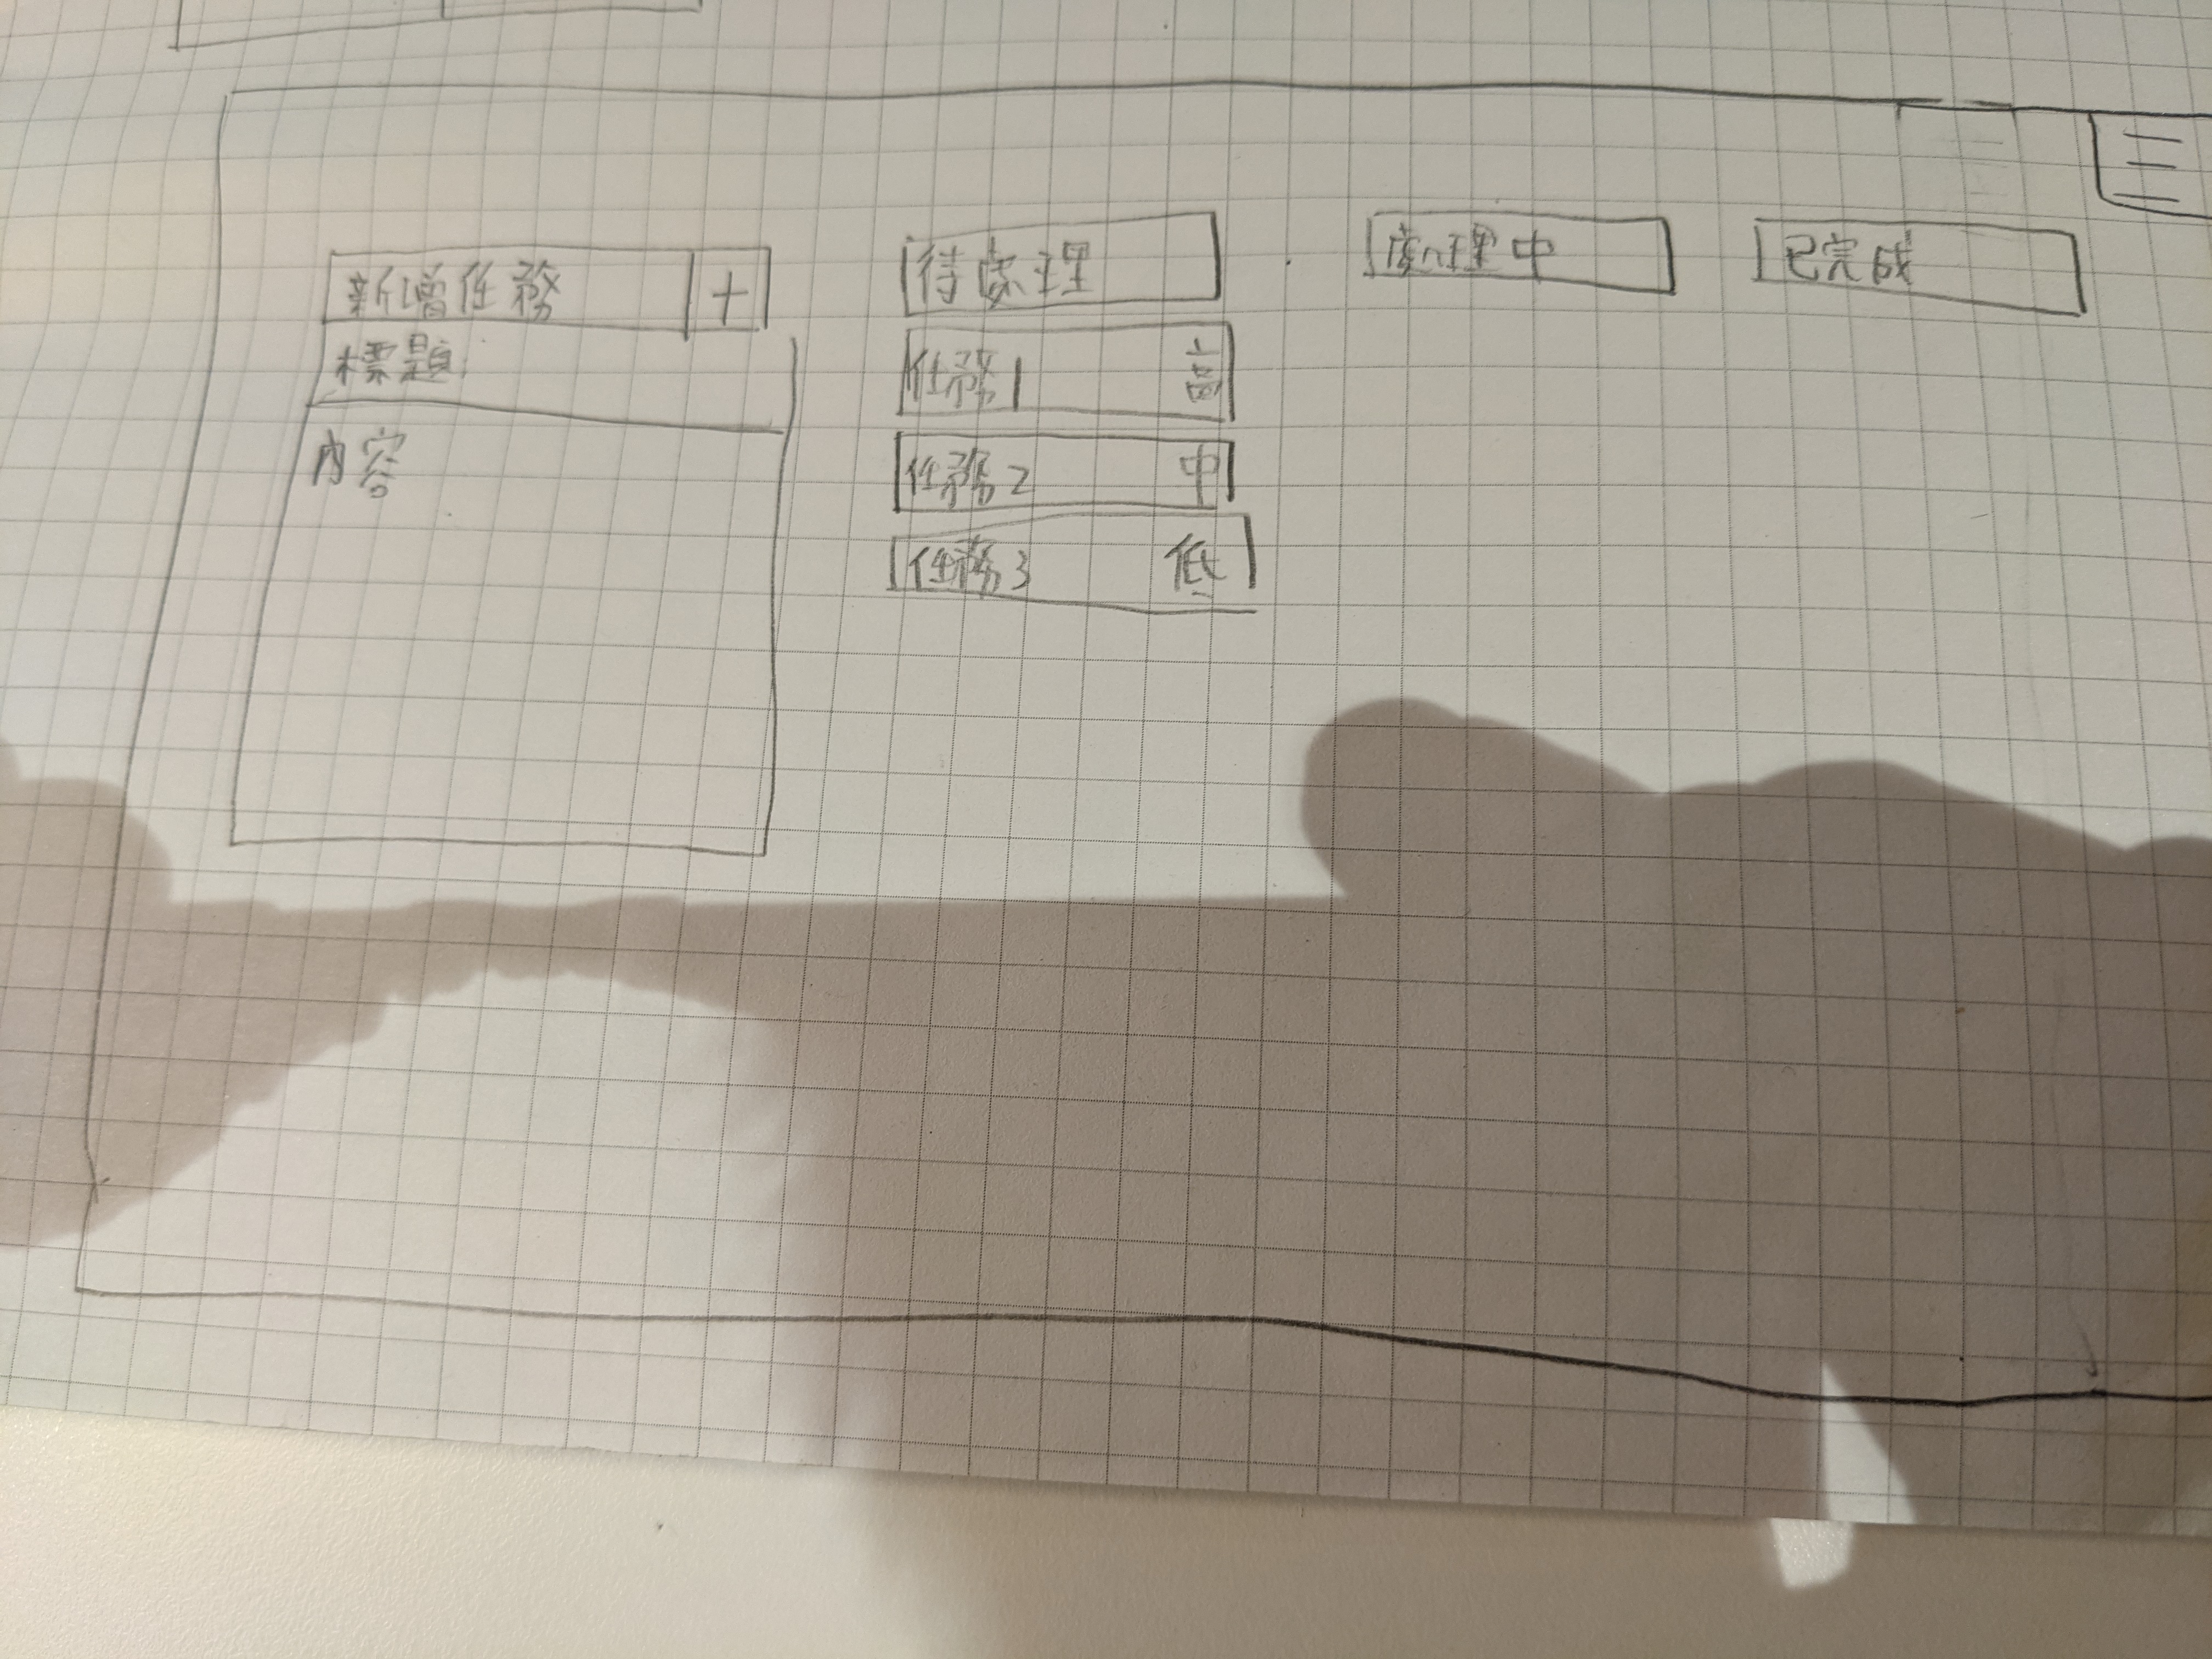 新增任務 +
標題
內容
待處理
任務1 高
任務2 中
任務3 低
處理中
已完成